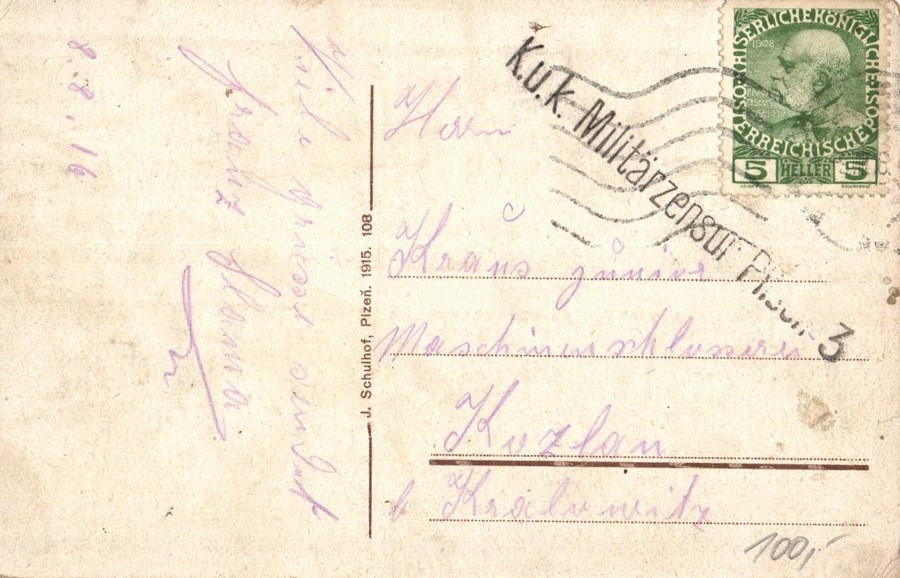 8.8.16
Viele Grüsse sendet
Franz Slama
Herrn
Kraus junior
Maschinenschlosserei
Kozlan
b Kralowitz
J. Schulhof, Plzeň. 1915. 108
K.u.k. Militärzensur Pilsen 3
KAISERLICHE KÖNIGLICHE ÖSTERREICHISCHE POST
1908
5 HELLER 5
100,-